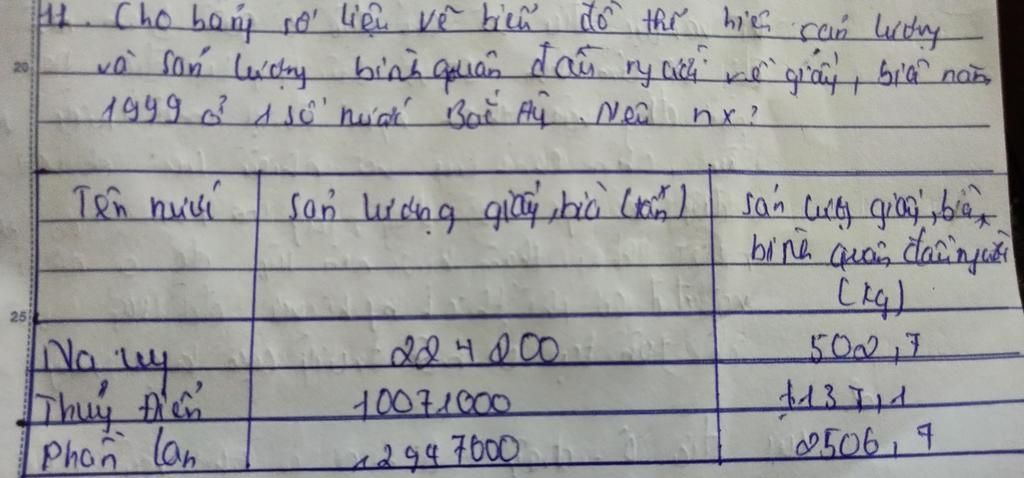 11. Cho bảng số liệu vẽ biểu đồ thể hiện sản lượng
20 và sản lượng bình quân đầu người về giấy, bìa năm
1999 ở 1 số nước Bắc Âu. Nêu nx?
Tên nước sản lượng giấy, bìa (tấn) sản lượng giấy, bìa
bình quân đầu người
25 (kg)
Na uy 224 200 502,7
Thuỵ Điển 10071000 1137,1
Phần lan 12947000 2506,7